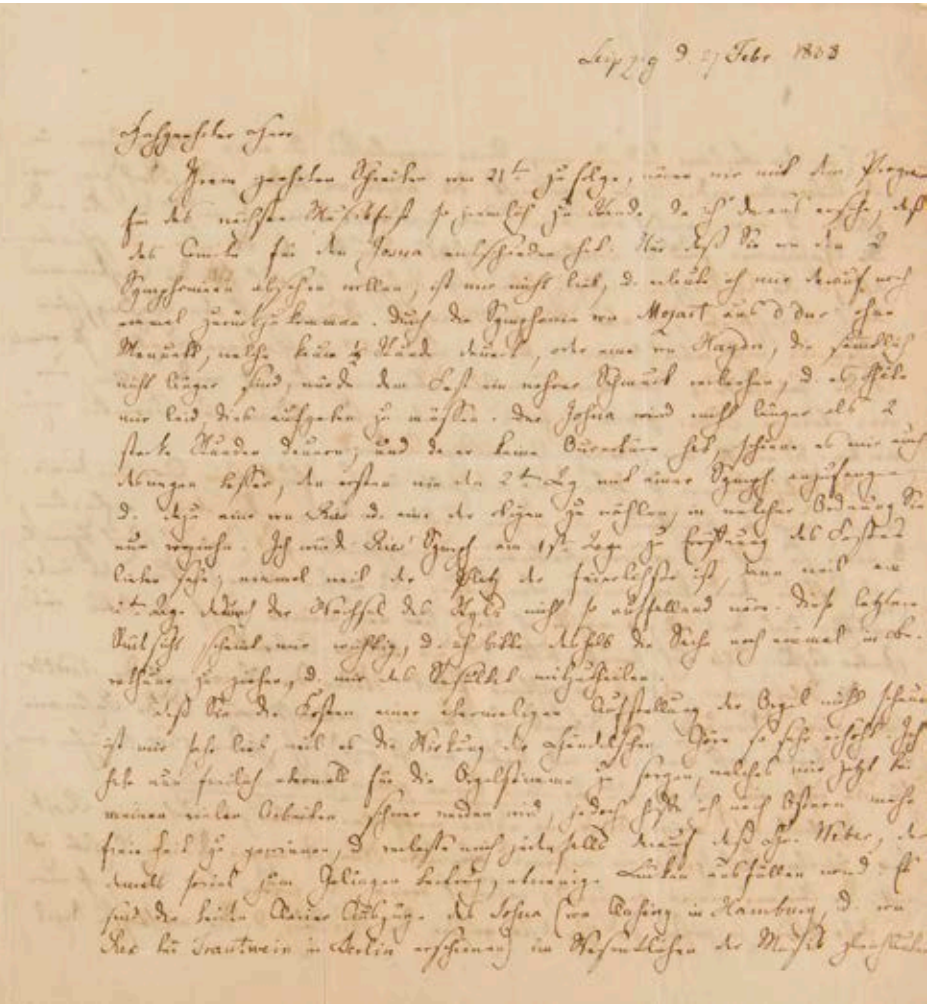 Leipzig d. 27 Febr 1838
Hochgeehrter Herr
Ihrem geehrten Schreiben vom 21ten zu folge, wären wir mit dem Program
für das nächste Musikfest so ziemlich zu Ende, da ich daraus ersehe, daß
das Comité für den Josua entschieden hat. Nur daß Sie von den 2
Symphonieen absehen wollen, ist mir nicht lieb, u. erlaube ich mir darauf noch
einmal zurückzukommen. Durch die Symphonie von Mozart aus d dur ohne
Menuett, welche keine ½ Stunde dauert, oder eine von Haydn, die sämtlich
nicht länger sind, würde dem Fest ein wahrer Schmuck verliehen, u. es thäte
mir leid, dies aufgeben zu müssen. Der Josua wird nicht länger als 2
starke Stunden dauern, und da er keine Ouvertüre hat, schiene es mir auch
deswegen besser, den ersten wie den 2ten Tag mit einer Symph. anzufangen
u. dazu eine von Ries u. eine der obigen zu wählen, in welcher Ordnung Sie
nun vorziehn. Ich würde Ries' Symph am 1sten Tage zu Eröffnung des Festes
lieber sehn, einmal weil der Platz der feierlichste ist, dann weil am
2ten Tage dadurch der Wechsel des Styls nicht so auffallend wäre. Diese letztere
Rücksicht scheint mir wichtig, u. ich bitte deshalb die Sache noch einmal in Be-
rathung zu ziehen, u. mir das Resultat mitzutheilen.
Daß Sie die Kosten einer abermaligen Aufstellung der Orgel nicht scheuen
ist mir sehr lieb, weil es die Wirkung der Händelschen Chöre so sehr erhöht. Ich
habe nun freilich abermals für die Orgelstimme zu sorgen, welches mir jetzt bei
meinen vielen Arbeiten schwer werden wird, jedoch hoffe ich nach Ostern mehr
freie Zeit zu gewinnen, u verlasse mich jedenfalls darauf daß Hr. Weber, der
damals soviel zum Gelingen beitrug, etwanige Lücken ausfüllen wird. Es
sind die beiden Clavier Auszüge des Josua (von Clasing in Hamburg, u. von
Rex bei Trautwein in Berlin erschienen) im Wesentlichen der Musik